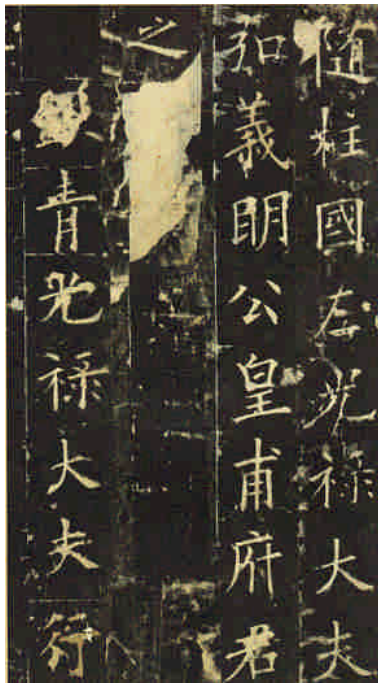 随柱國左光禄大夫
弘義明公皇甫府君
之
銀青光禄大夫行